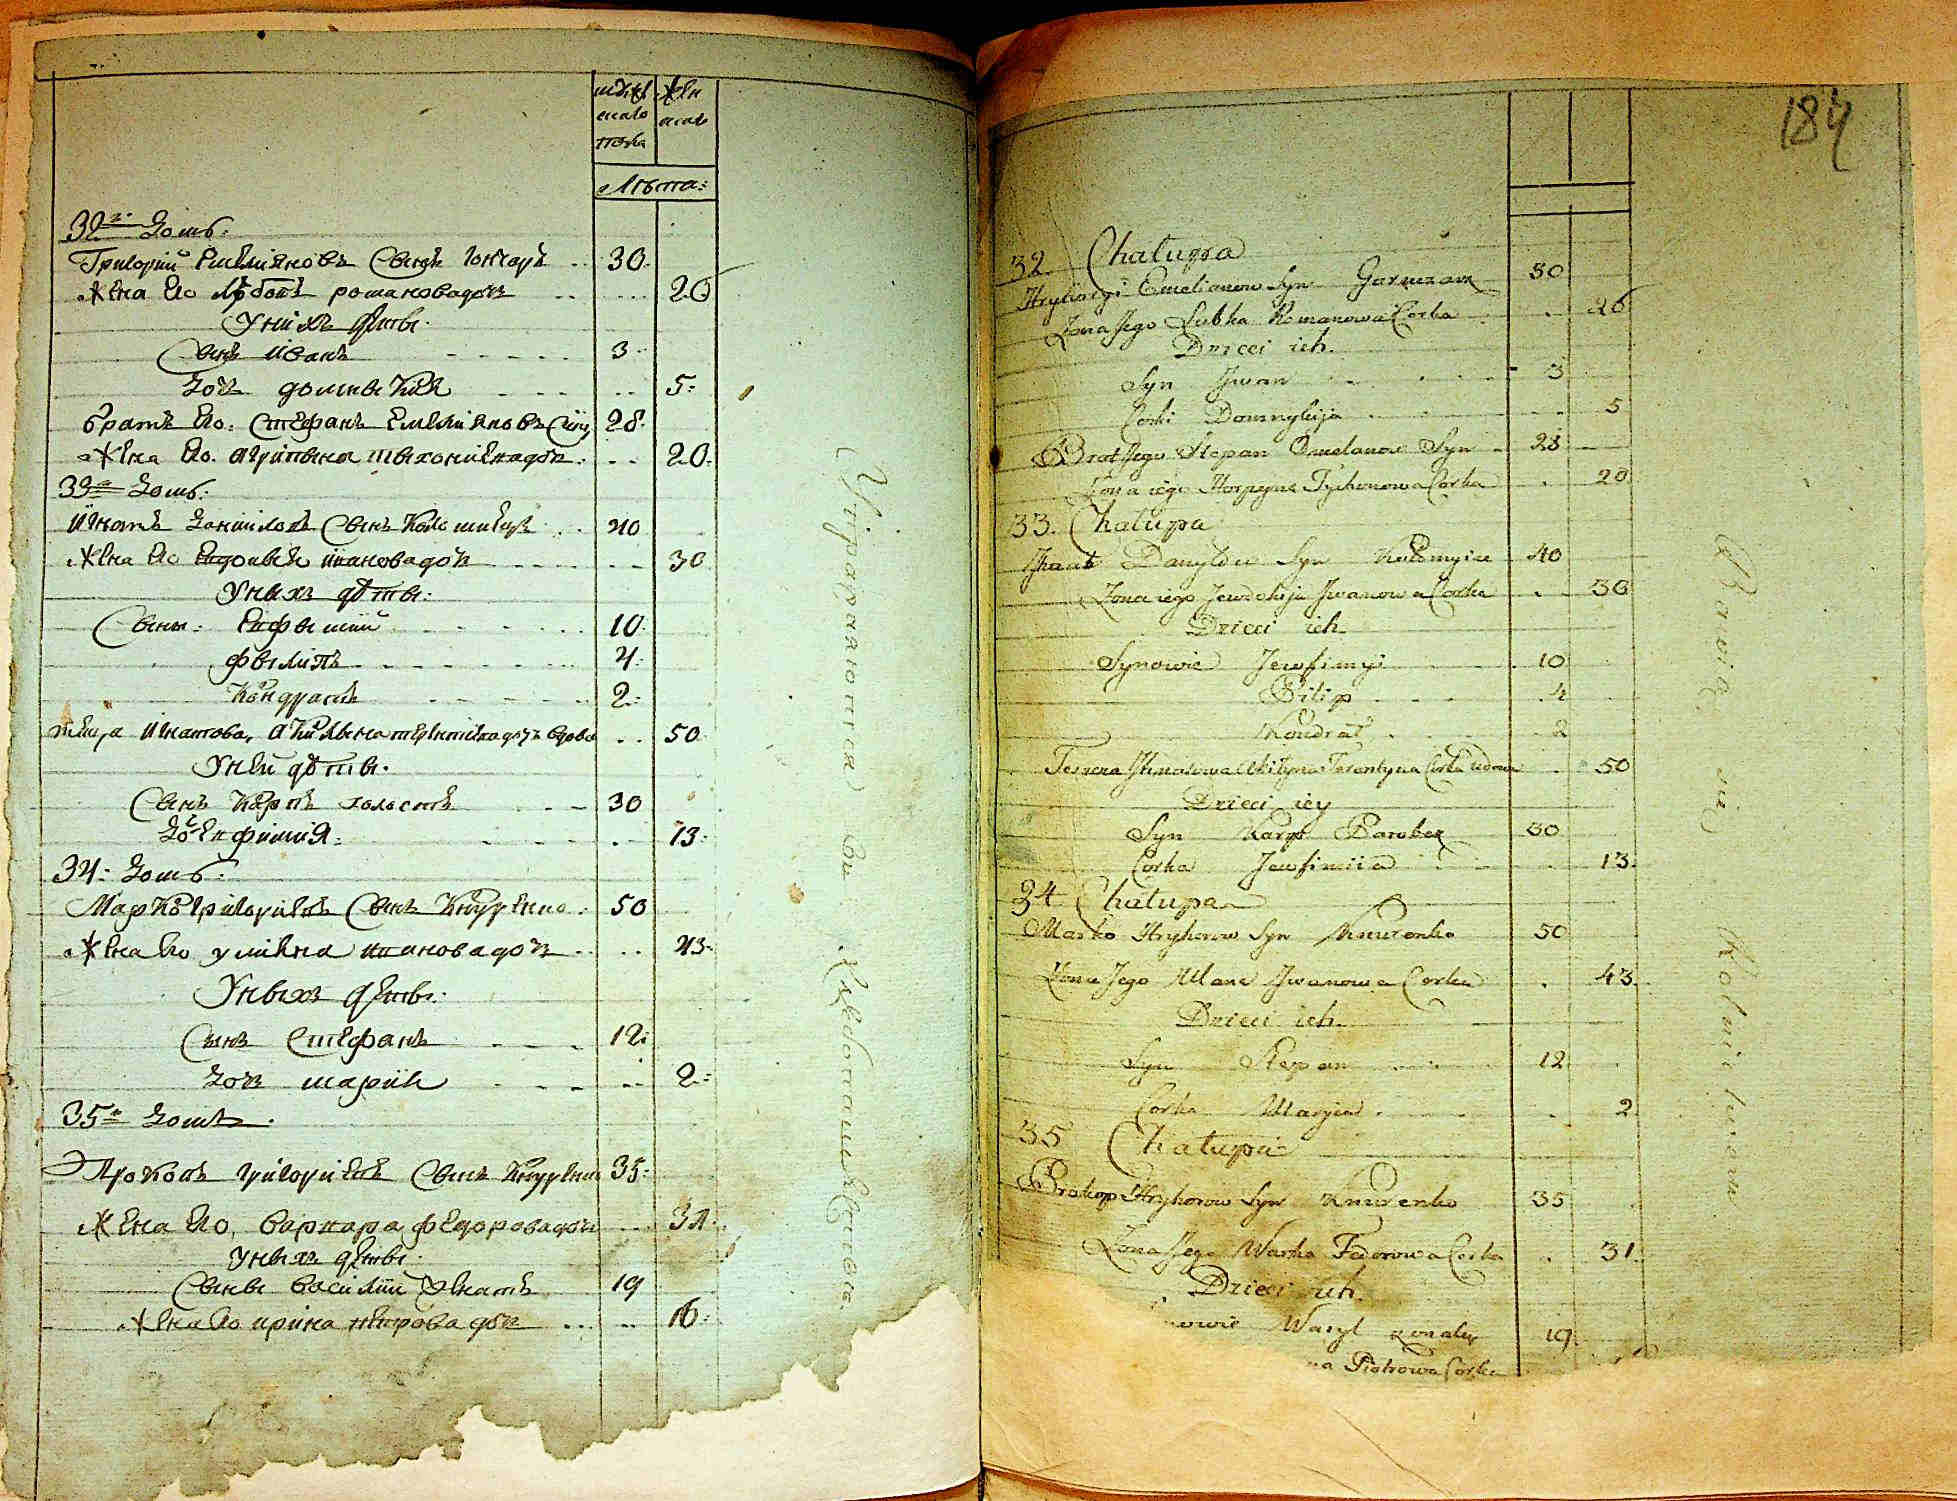 мужескаго пола
женскаго
Лѣта:
32й Домъ.
Григорий Емелияновъ Сынъ Гончаръ 30.
Жена Его Любовъ романова дочь 26
У них дети.
Сынъ иванъ 3
Дочь домникия 5:
братъ Его. Стефанъ Емелияновъ Сынъ 28.
Жена Его. агрипына тихониева дочь 20.
33й Домъ.
Игнатъ Даниловъ Сынъ Коломиецъ 40
Жена Его Евдокия ивановадочь 30
У ных дети.
Сыны: Евфимий 10:
филипъ 4:
Кондратъ 2:
теща игнатова, акилына терентиева дочь вдова 50
У ней дети.
Сынъ Карпъ холостъ 30
Дочь Евфимия: 13:
34: Домъ.
Марко григориевъ Сынъ Кнуренко 50
Жена Его улияна ивановадочь 43.
У ных дети.
Сынъ Стефанъ 12:
Дочь мария 2:
35й Домъ.
Прокопъ григориевъ Сынъ Кнуренко 35:
Жена Его, варвара федоровадочь 31.
У ных дети.
Сыны василий женатъ 19
Жена Его ирина петрова дочь 16:
184
32 Chałupa
Hryhoryi Emelianow Syn Garnczarz 30
Zona Jego Lubka Romanowa Corka 26
Dzieci ich.
Syn Jwan 3
Corki Domnykija 5
Brat Jego Stepan Omelanow Syn 28
Zona iego Horpyna Tychonowa Corka 20
33. Chałupa
Jhnat Danyłow Syn Kołomyiec 40
Zona iego Jewdokija Jwanowa Corka 30
Dzieci ich
Synowie Jewfimyi 10
Pilip 4
Kondrat 2
Teszcza Jhnatowa Akilyna Terentyna Corka wdowa 50
Dzieci iey
Syn Karp Parobek 30
Corka Jewfimiia 13.
34 Chałupa
Marko Hryhorow Syn Knurenko 50
Zona Jego Ulana Jwanowa Corka 43.
Dzieci ich.
Syn Stepan 12
Corka Maryia 2
35 Chałupa
Prokop Hryhorow Syn Knurenko 35
Zona Jego Warka Fedorowa Corka 31.
Dzieci ich.
Wasyl zonaty 19.
Piotrowa Corka